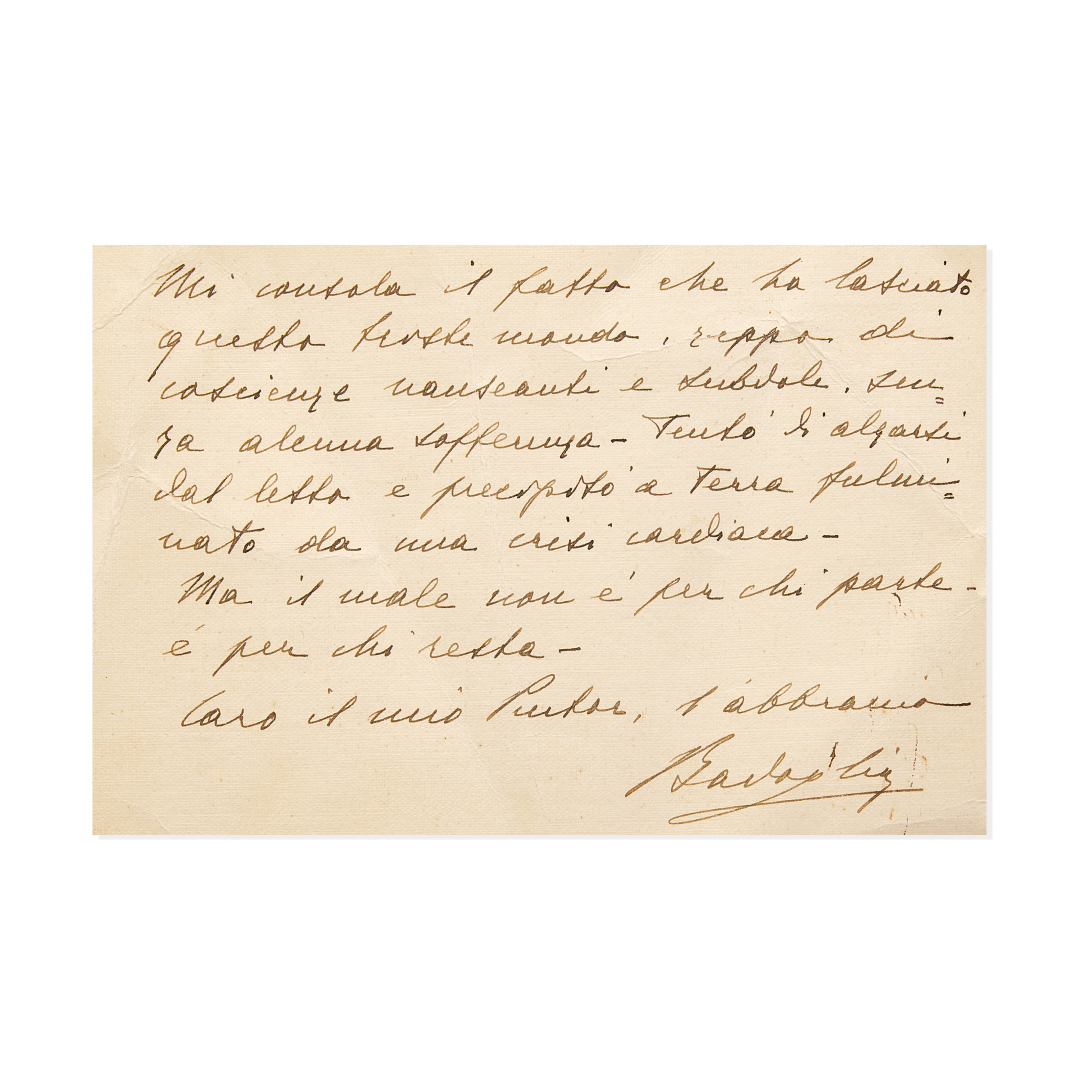 Mi consola il fatto che ha lasciato
questo triste mondo, zeppo di
coscienze nauseanti e subdole, sen=
za alcuna sofferenza - Tentò di alzarsi
dal letto e precipitò a terra fulmi=
nato da una crisi cardiaca -
Ma il male non é per chi parte -
é per chi resta -
Caro il mio Pintor, t'abbraccio
Badoglio